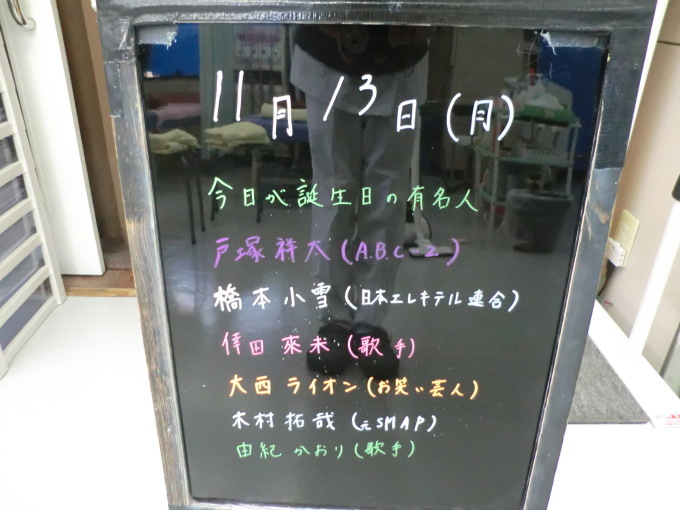 11月13日(月)
今日が誕生日の有名人
戸塚祥太(A.B.C-Z)
橋本小雪(日本エレキテル連合)
倖田來未(歌手)
大西ライオン(お笑い芸人)
木村拓哉(元SMAP)
由紀かおり(歌手)